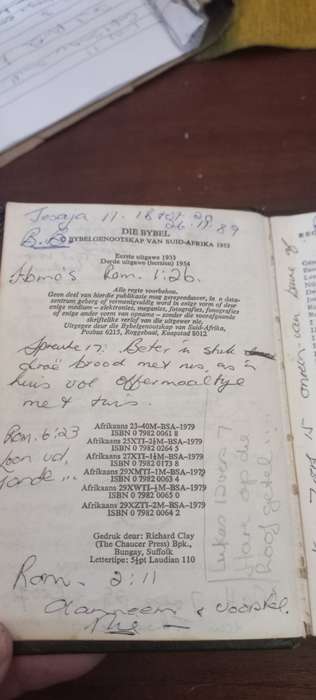 Jesaja 11. 16 tot 20
26.11.89
DIE BYBEL
BYBELGENOOTSKAP VAN SUID-AFRIKA 1933
Eerste uitgawe 1933
Derde uitgawe (hersien) 1954
Homo's Rom. 1:26.
Alle regte voorbehou.
Geen deel van hierdie publikasie mag gereproduseer, in 'n data-
sentrum geberg of vermenigvuldig word in enige vorm of deur
enige medium – elektronies, meganies, fotografies, fonografies
of enige ander vorm van opname – sonder die voorafgaande
skriftelike verlof van die uitgewer nie.
Uitgegee deur die Bybelgenootskap van Suid-Afrika,
Posbus 6215, Roggebaai, Kaapstad 8012
Spreuke 17: Beter 'n stuk
droë brood met rus, as 'n
huis vol offermaaltye
met twis.
Rom. 6:23
loon vd.
sonde ...
Afrikaans 23–40M–BSA–1979
ISBN 0 7982 0061 8
Afrikaans 25XTI–2½M–BSA–1979
ISBN 0 7982 0264 5
Afrikaans 27XTI–1½M–BSA–1979
ISBN 0 7982 0173 8
Afrikaans 29XMTI–1M–BSA–1979
ISBN 0 7982 0063 4
Afrikaans 29XWTI–½M–BSA–1979
ISBN 0 7982 0065 0
Afrikaans 29XZTI–2M–BSA–1979
ISBN 0 7982 0064 2
Lukas 12 vers 7
Hare op de
hoof getel ...
Gedruk deur: Richard Clay
(The Chaucer Press) Bpk.,
Bungay, Suffolk
Lettertipe: 5½pt Laudian 110
Rom. 2:11
Aanneem & voorstel.